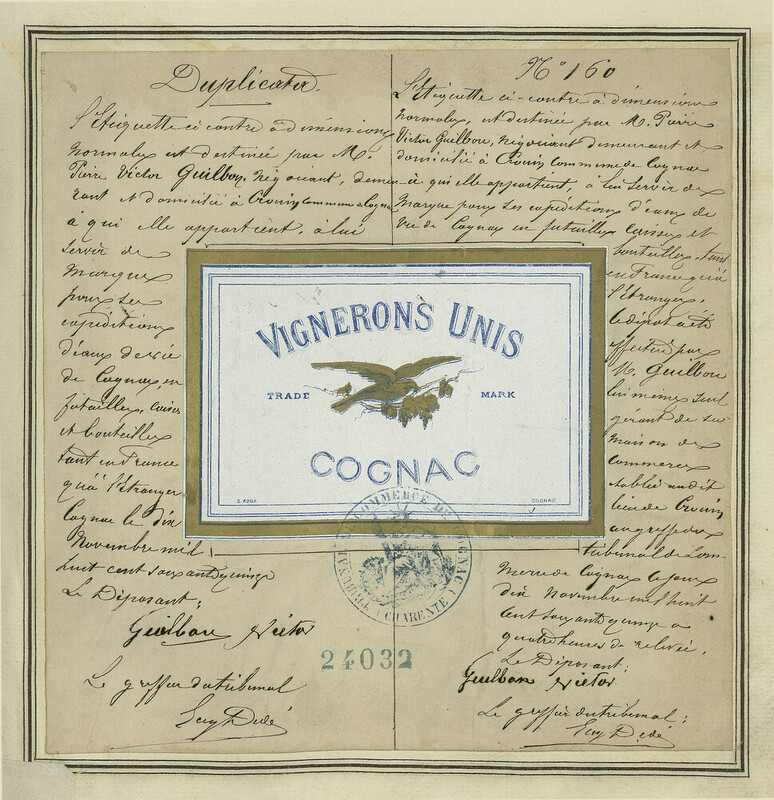 Duplicata.
L'Etiquette ci contre à dimensions
normales est destinée par M.
Pierre Victor Guilbon, Négociant, demeu
rant et domicilié à Crouin commune de Cognac
à qui elle appartient, à lui
servir de
marque
pour ses
expéditions
d'eaux de vie
de Cognac en
futailles, caisses
et bouteilles
tant en France
qu'à l'étranger
Cognac le dix
Novembre mil
huit cent soixante quinze
Le Déposant:
Guilbon Victor
Le greffier du tribunal
N° 160
L'Etiquette ci-contre à dimensions
normales, est destinée par M. Pierre
Victor Guilbon, négociant demeurant et
domicilié à Crouin Commune de Cognac
à qui elle appartient, à lui servir de
Marque pour ses expéditions d'eaux de
vie de Cognac en futailles caisses et
bouteilles, tant
en France qu'à
l'étranger.
le dépôt a été
effectué par
M. Guilbon
lui même seul
gérant de sa
maison de
commerce
établie audit
lieu de Crouin
au greffe du
tribunal de Com
merce de Cognac le jour
dix novembre mil huit
cent soixante quinze à
quatre heures de relevée.
Le Déposant:
Guilbon Victor
Le greffier du tribunal:
VIGNERONS UNIS
TRADE MARK
COGNAC
G. ROUX COGNAC
TRIBUNAL DE COMMERCE DE COGNAC (CHARENTE)
24032